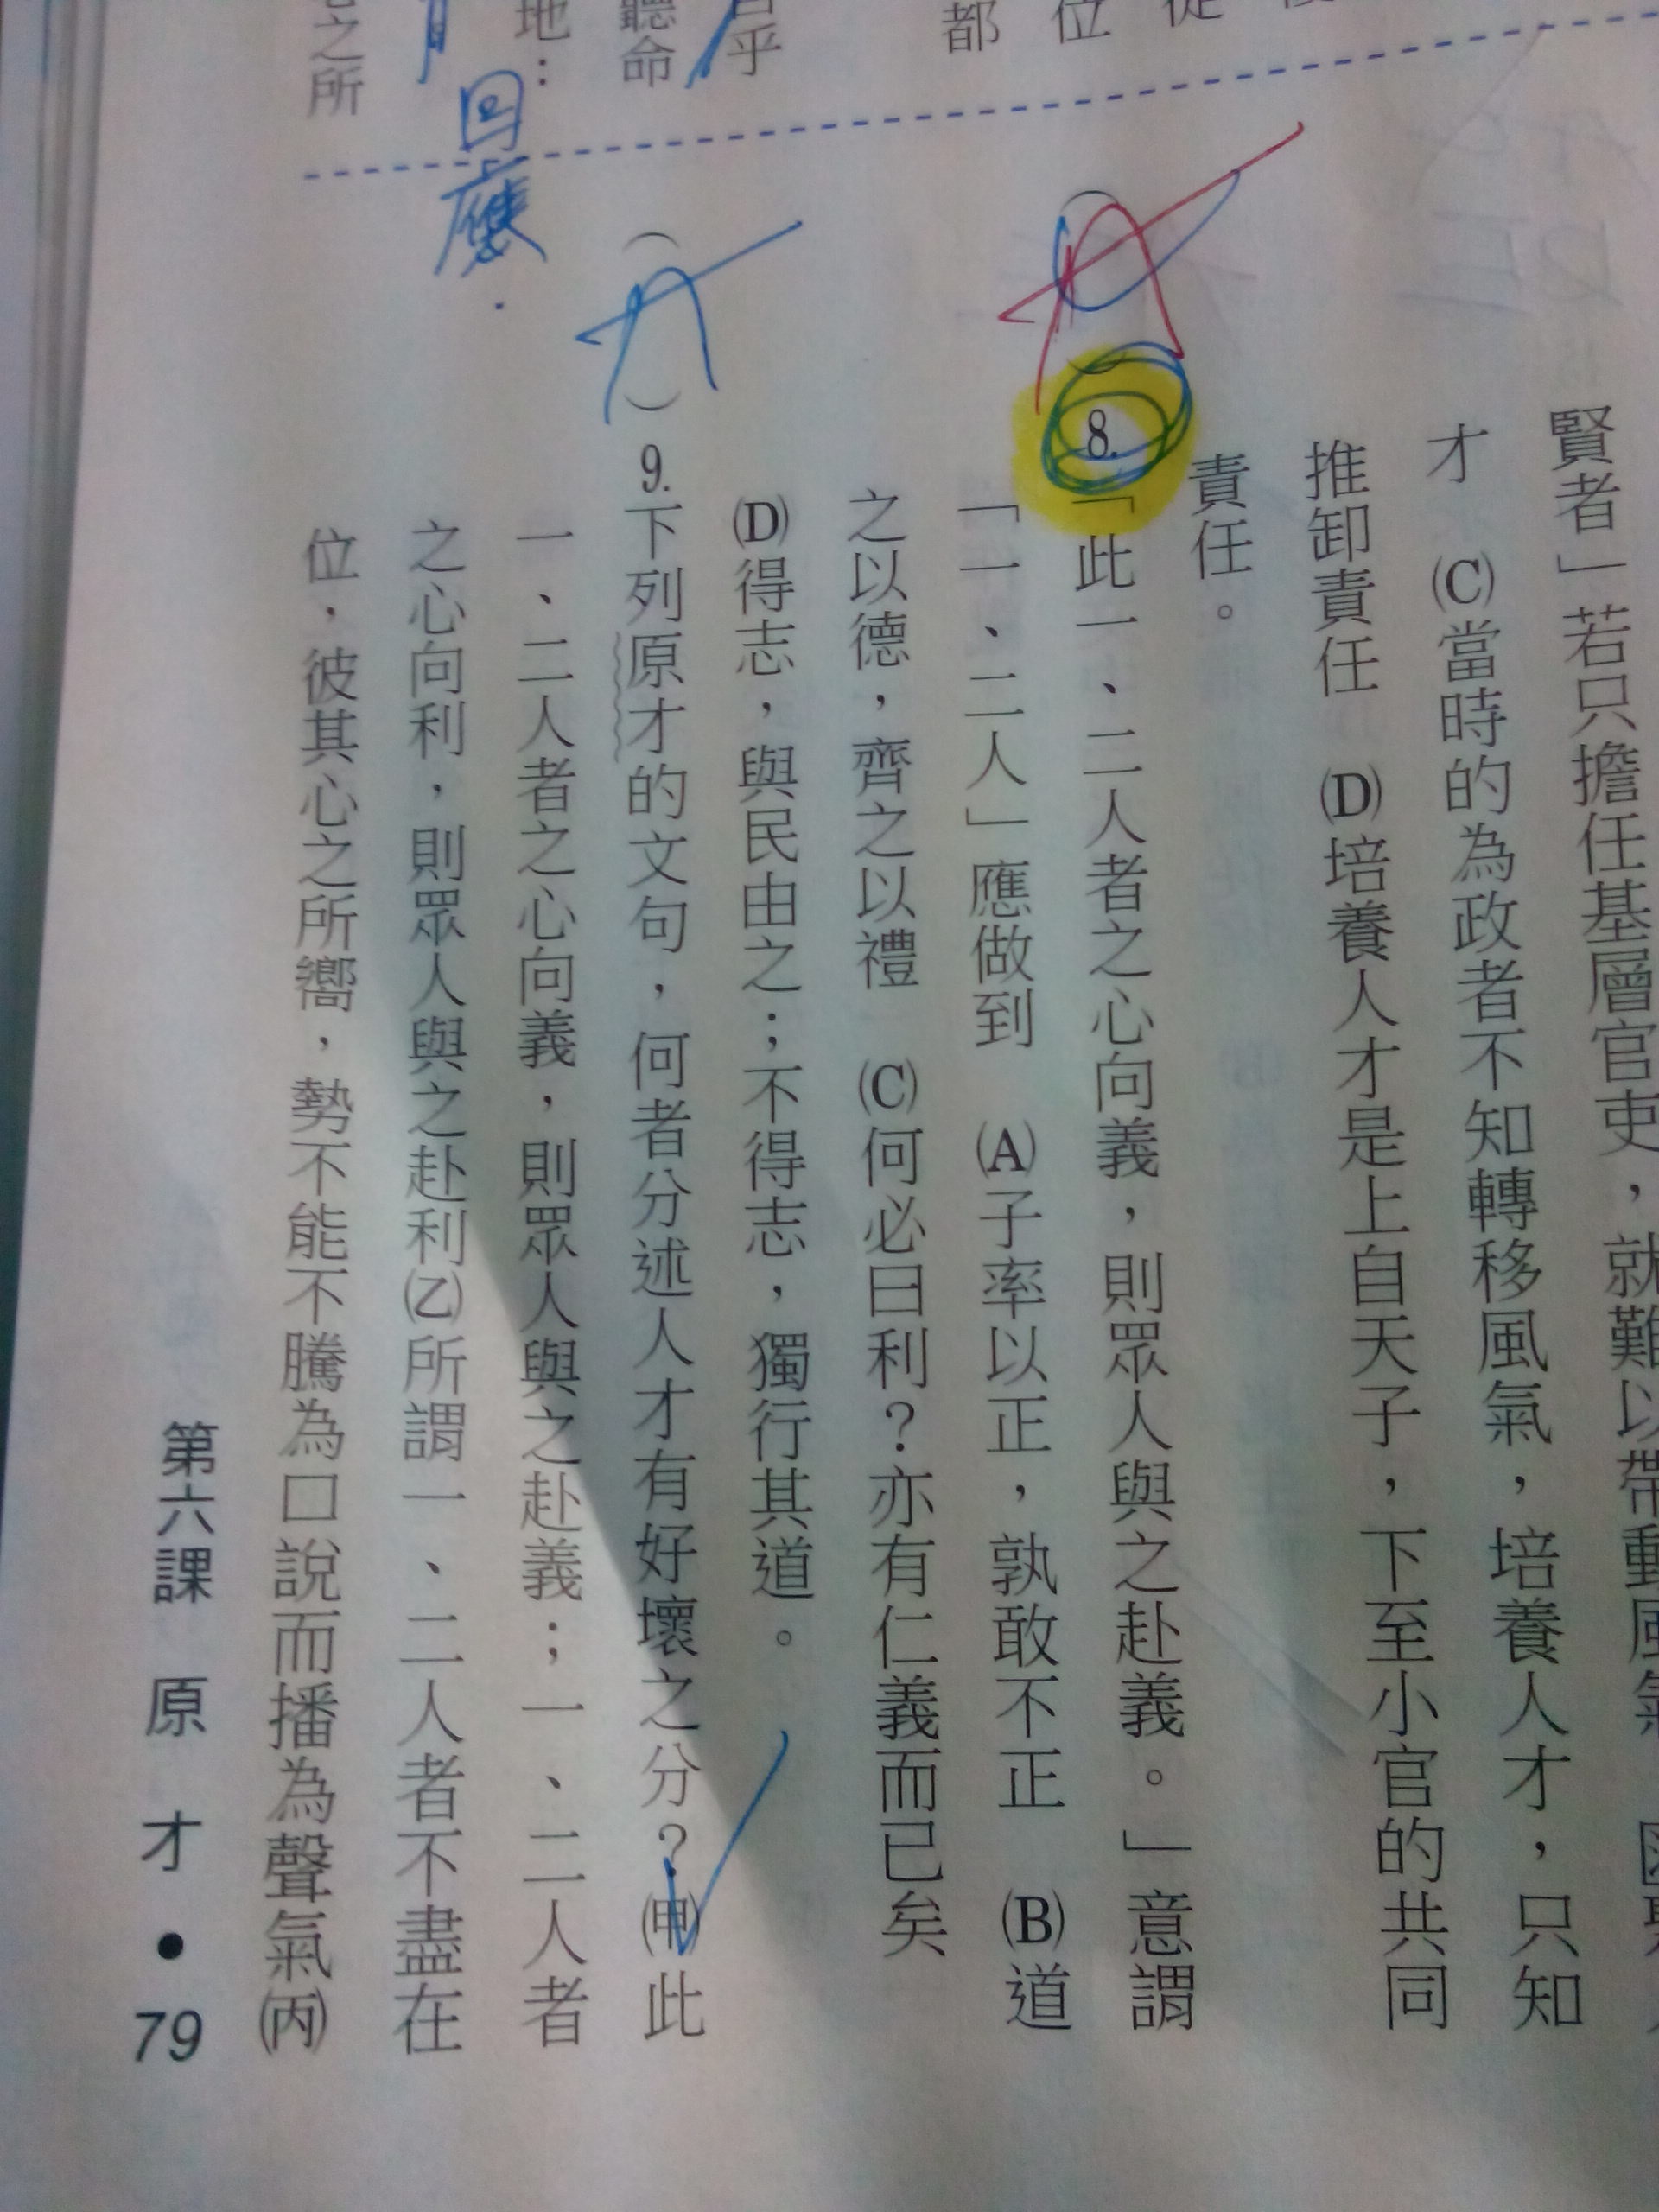 都
位
乎
聽命
地：
之所
賢者」若只擔任基層官吏，就難以帶動風氣
才　(C)當時的為政者不知轉移風氣，培養人才，只知
推卸責任　(D)培養人才是上自天子，下至小官的共同
責任。
(A)8.「此一、二人者之心向義，則眾人與之赴義。」意謂
「一、二人」應做到　(A)子率以正，孰敢不正　(B)道
之以德，齊之以禮　(C)何必曰利？亦有仁義而已矣
(D)得志，與民由之；不得志，獨行其道。
(A)9.下列原才的文句，何者分述人才有好壞之分？(甲)此
一、二人者之心向義，則眾人與之赴義；一、二人者
之心向利，則眾人與之赴利(乙)所謂一、二人者不盡在
位，彼其心之所嚮，勢不能不騰為口說而播為聲氣(丙)
回應.
第六課　原　才 ● 79